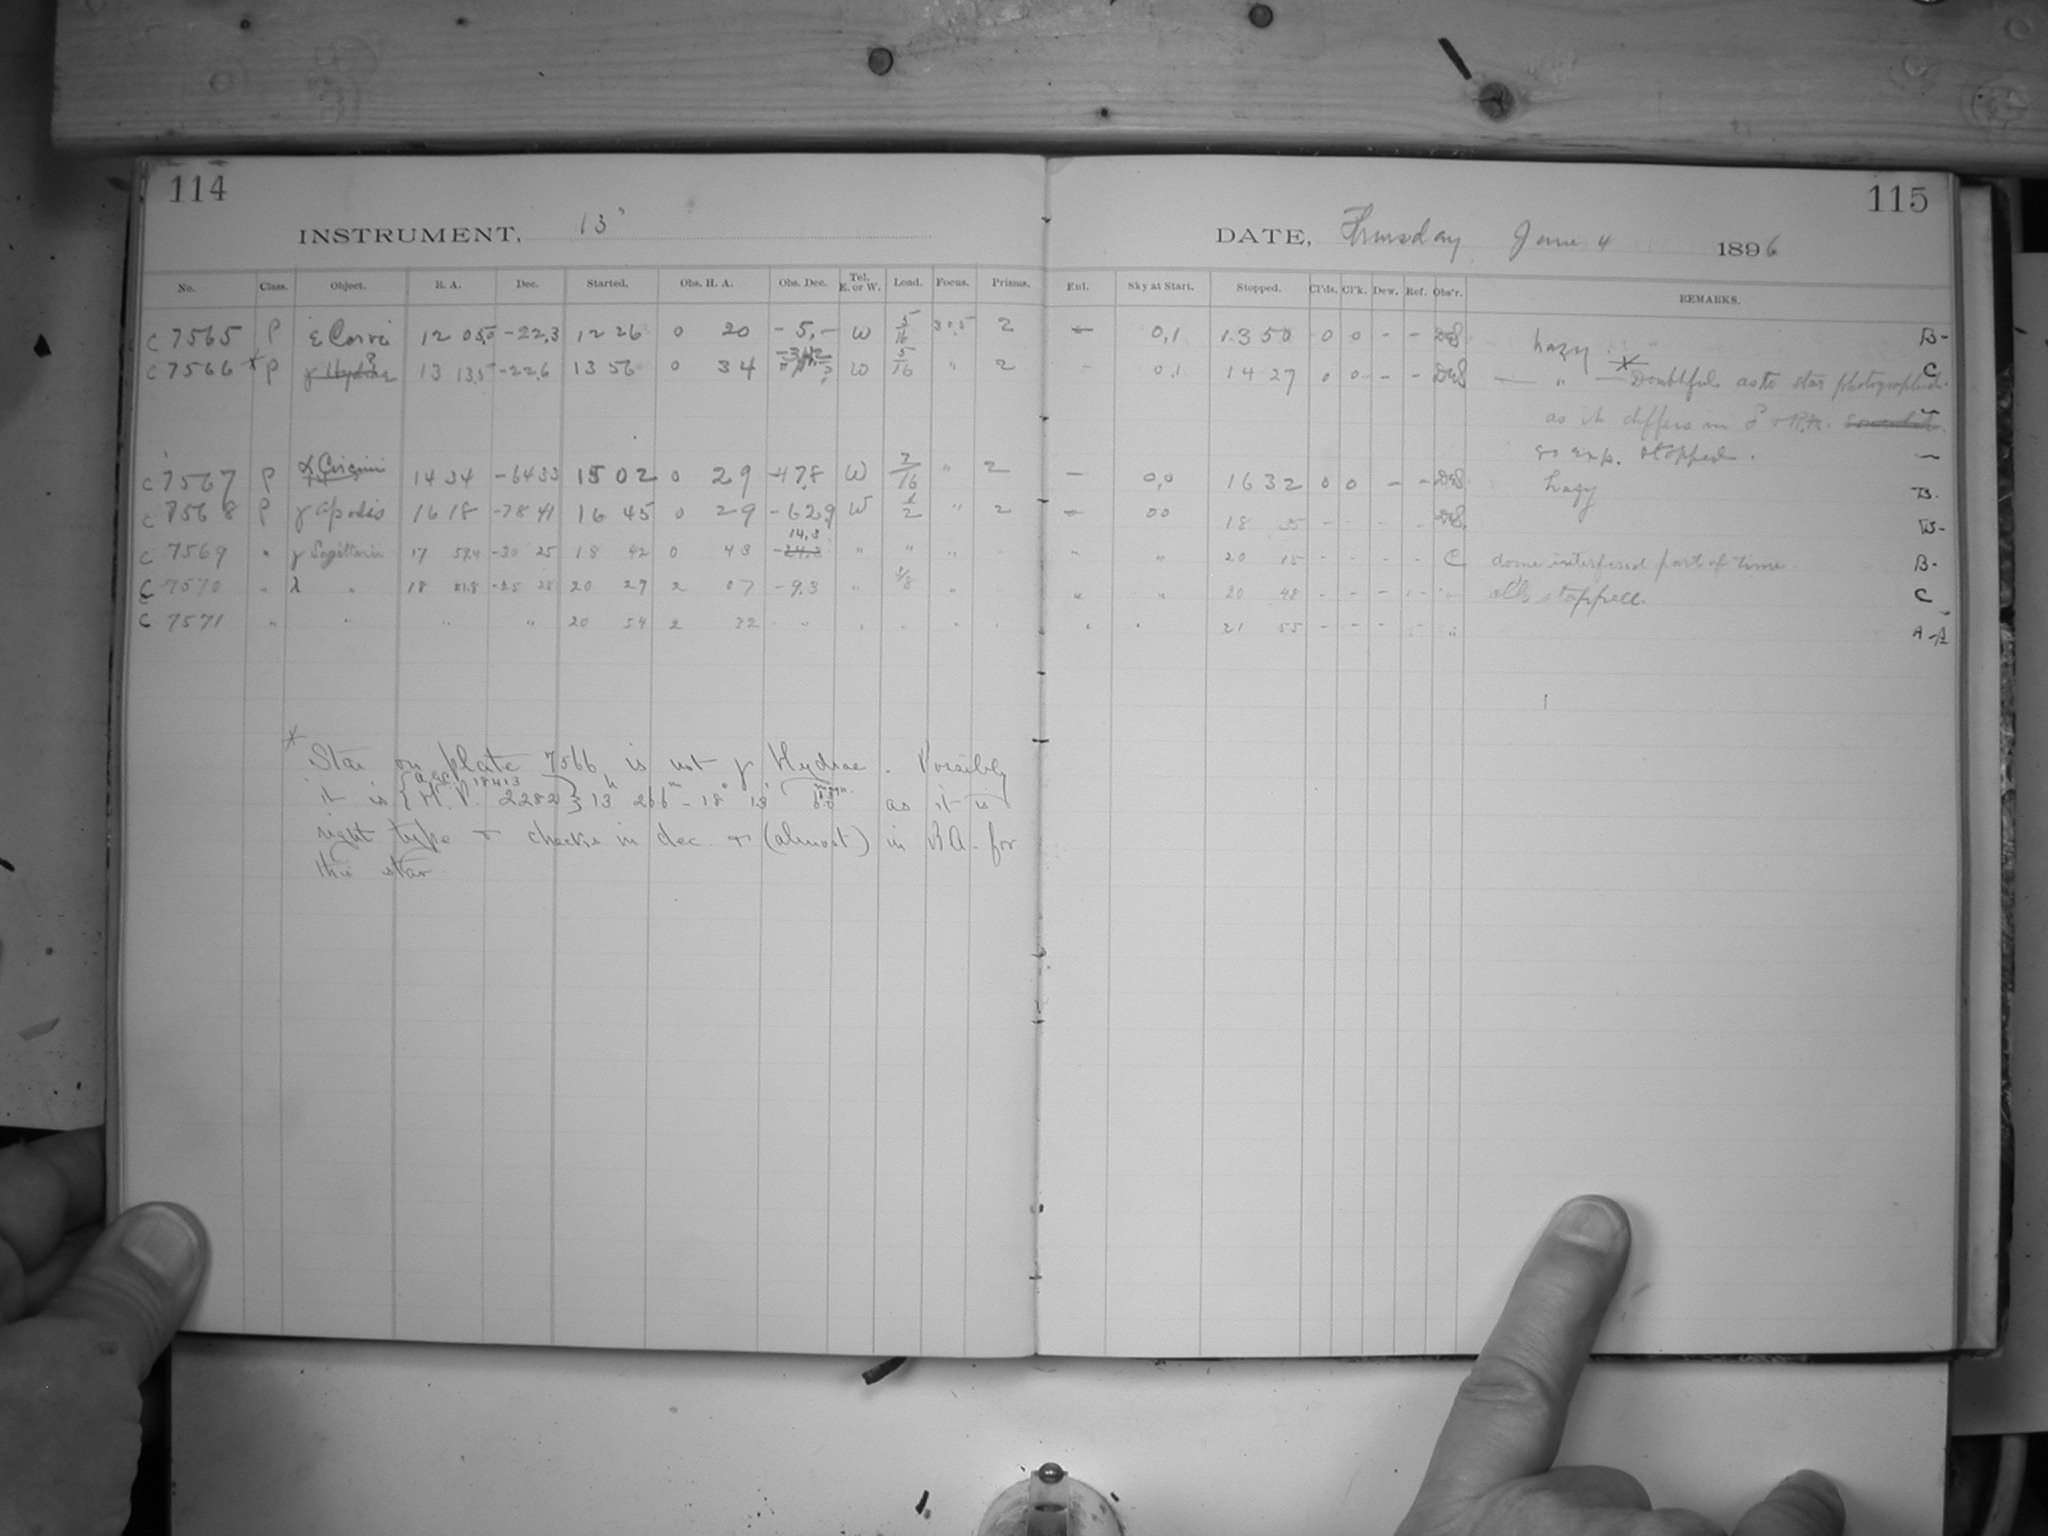 114
INSTRUMENT, 13"
No. Class. Object. R. A. Dec. Started. Obs. H. A. Obs. Dec. Tel. E. or W. Load. Focus. Prisms.
C 7565 P ε Corvi 12 05,0 -22,3 12 26 0 20 - 5,- W 5/16 2
C 7566 * P γ Hydrae ? 13 13,5 -22,6 13 56 0 34 W 5/16 " 2
C 7567 P α Circini 14 34 -64 33 15 02 0 29 -47,8 W 7/16 " 2
C 7568 P γ Apodis 16 18 -78 41 16 45 0 29 -62,9 W 1/2 " 2
C 7569 " γ Sagittarii 17 59,4 -30 25 18 42 0 43 14,3 -24,3 " " "
C 7570 " λ " 18 21,8 -25 28 20 29 2 07 -9,3 "
C 7571 " " " " 20 54 2 32
* Star on plate 7566 is not γ Hydrae. Possibly
it is { A.G.C. 18413 H.P. 2282 } 13h 26.6m -18° 13' as it is
right type & checks in dec. & (almost) in RA. for
this star
115
DATE, Thursday June 4 1896
Enl. Sky at Start. Stopped. Cl'ds. Cl'k. Dew. Ref. Obs'r. REMARKS.
— 0,1 13 50 0 0 - - hazy B-
- 0,1 14 27 0 0 - - " * Doubtful as to star photographed C
as it differs in δ & R.A.
so exp. stopped.
— 0,0 16 32 0 0 - - hazy B-
— 00 18 35 - - - - B-
" " 20 15 - - - - C dome interfered part of time B-
" " 20 48 - - - - " clk stopped. C
21 55 - - - - " A-